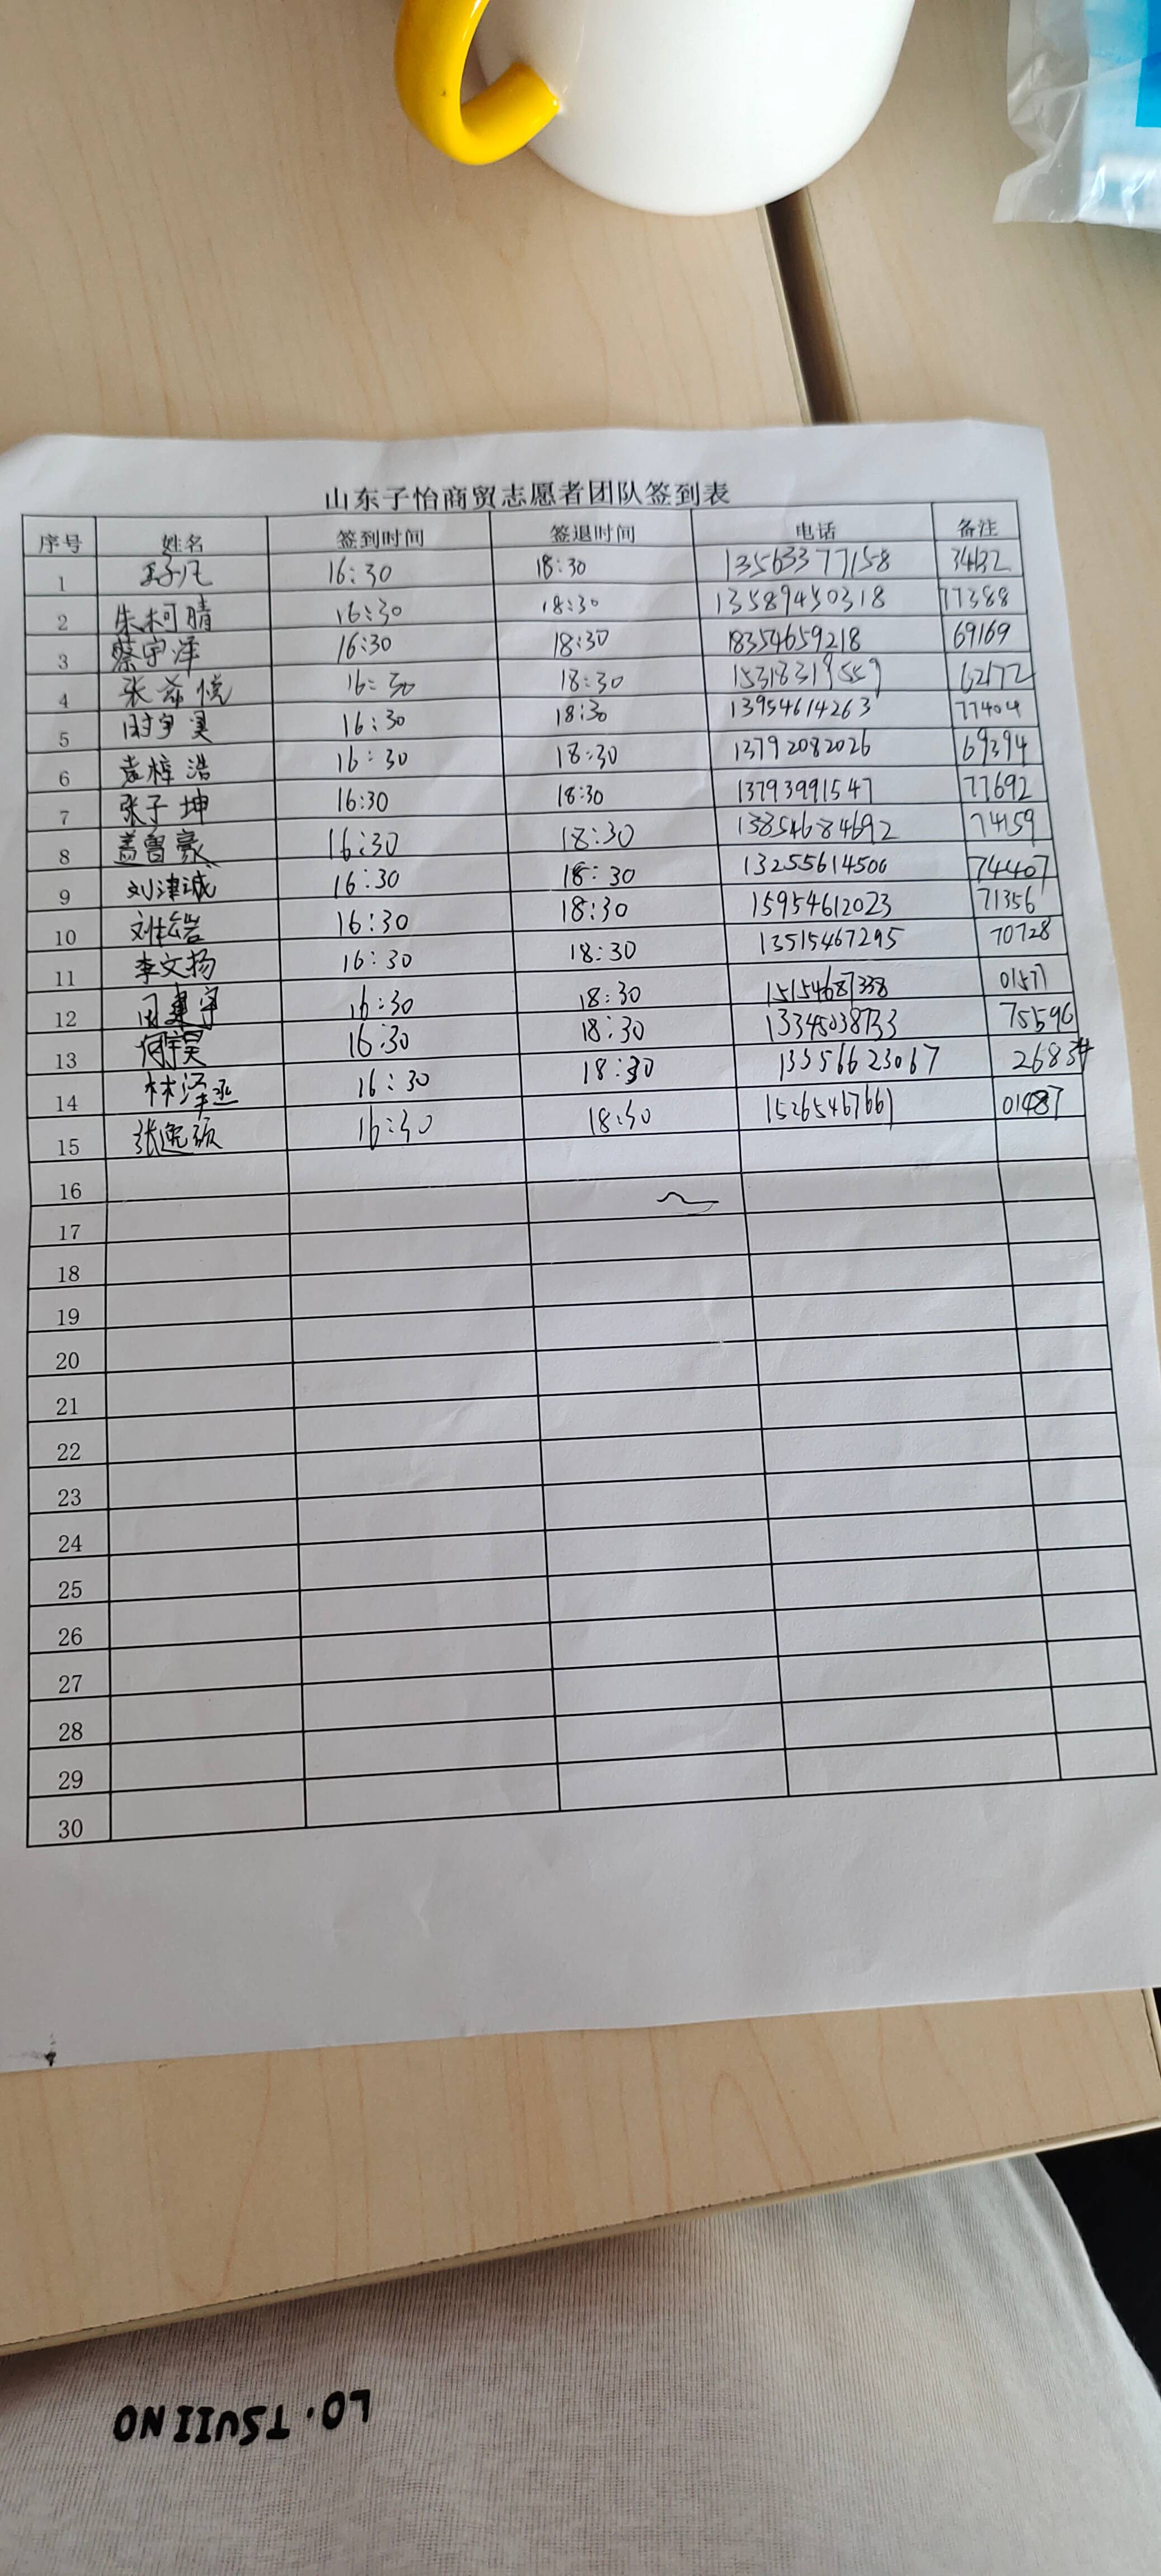 山东子怡商贸志愿者团队签到表
序号 姓名 签到时间 签退时间 电话 备注
1 16:30 18:30 13563377158 34132
2 朱柯晴 16:30 18:30 13589450318 77388
3 蔡宇泽 16:30 18:30 18354659218 69169
4 张悦 16:30 18:30 62172
5 16:30 18:30 13954614263 77404
6 袁梓浩 16:30 18:30 13792082026 69394
7 张子坤 16:30 18:30 13793991547 77692
8 盖鲁豪 16:30 18:30 13854684692 74159
9 刘津诚 16:30 18:30 13255614500 74407
10 16:30 18:30 15954612023 71356
11 李文扬 16:30 18:30 13515467295 70728
12 16:30 18:30 15154687338 01577
13 16:30 18:30 13345038733 75596
14 林泽丞 16:30 18:30 13356623067
15 16:30 18:30 15265467661 01487
16
17
18
19
20
21
22
23
24
25
26
27
28
29
30
LO·TSUIINO